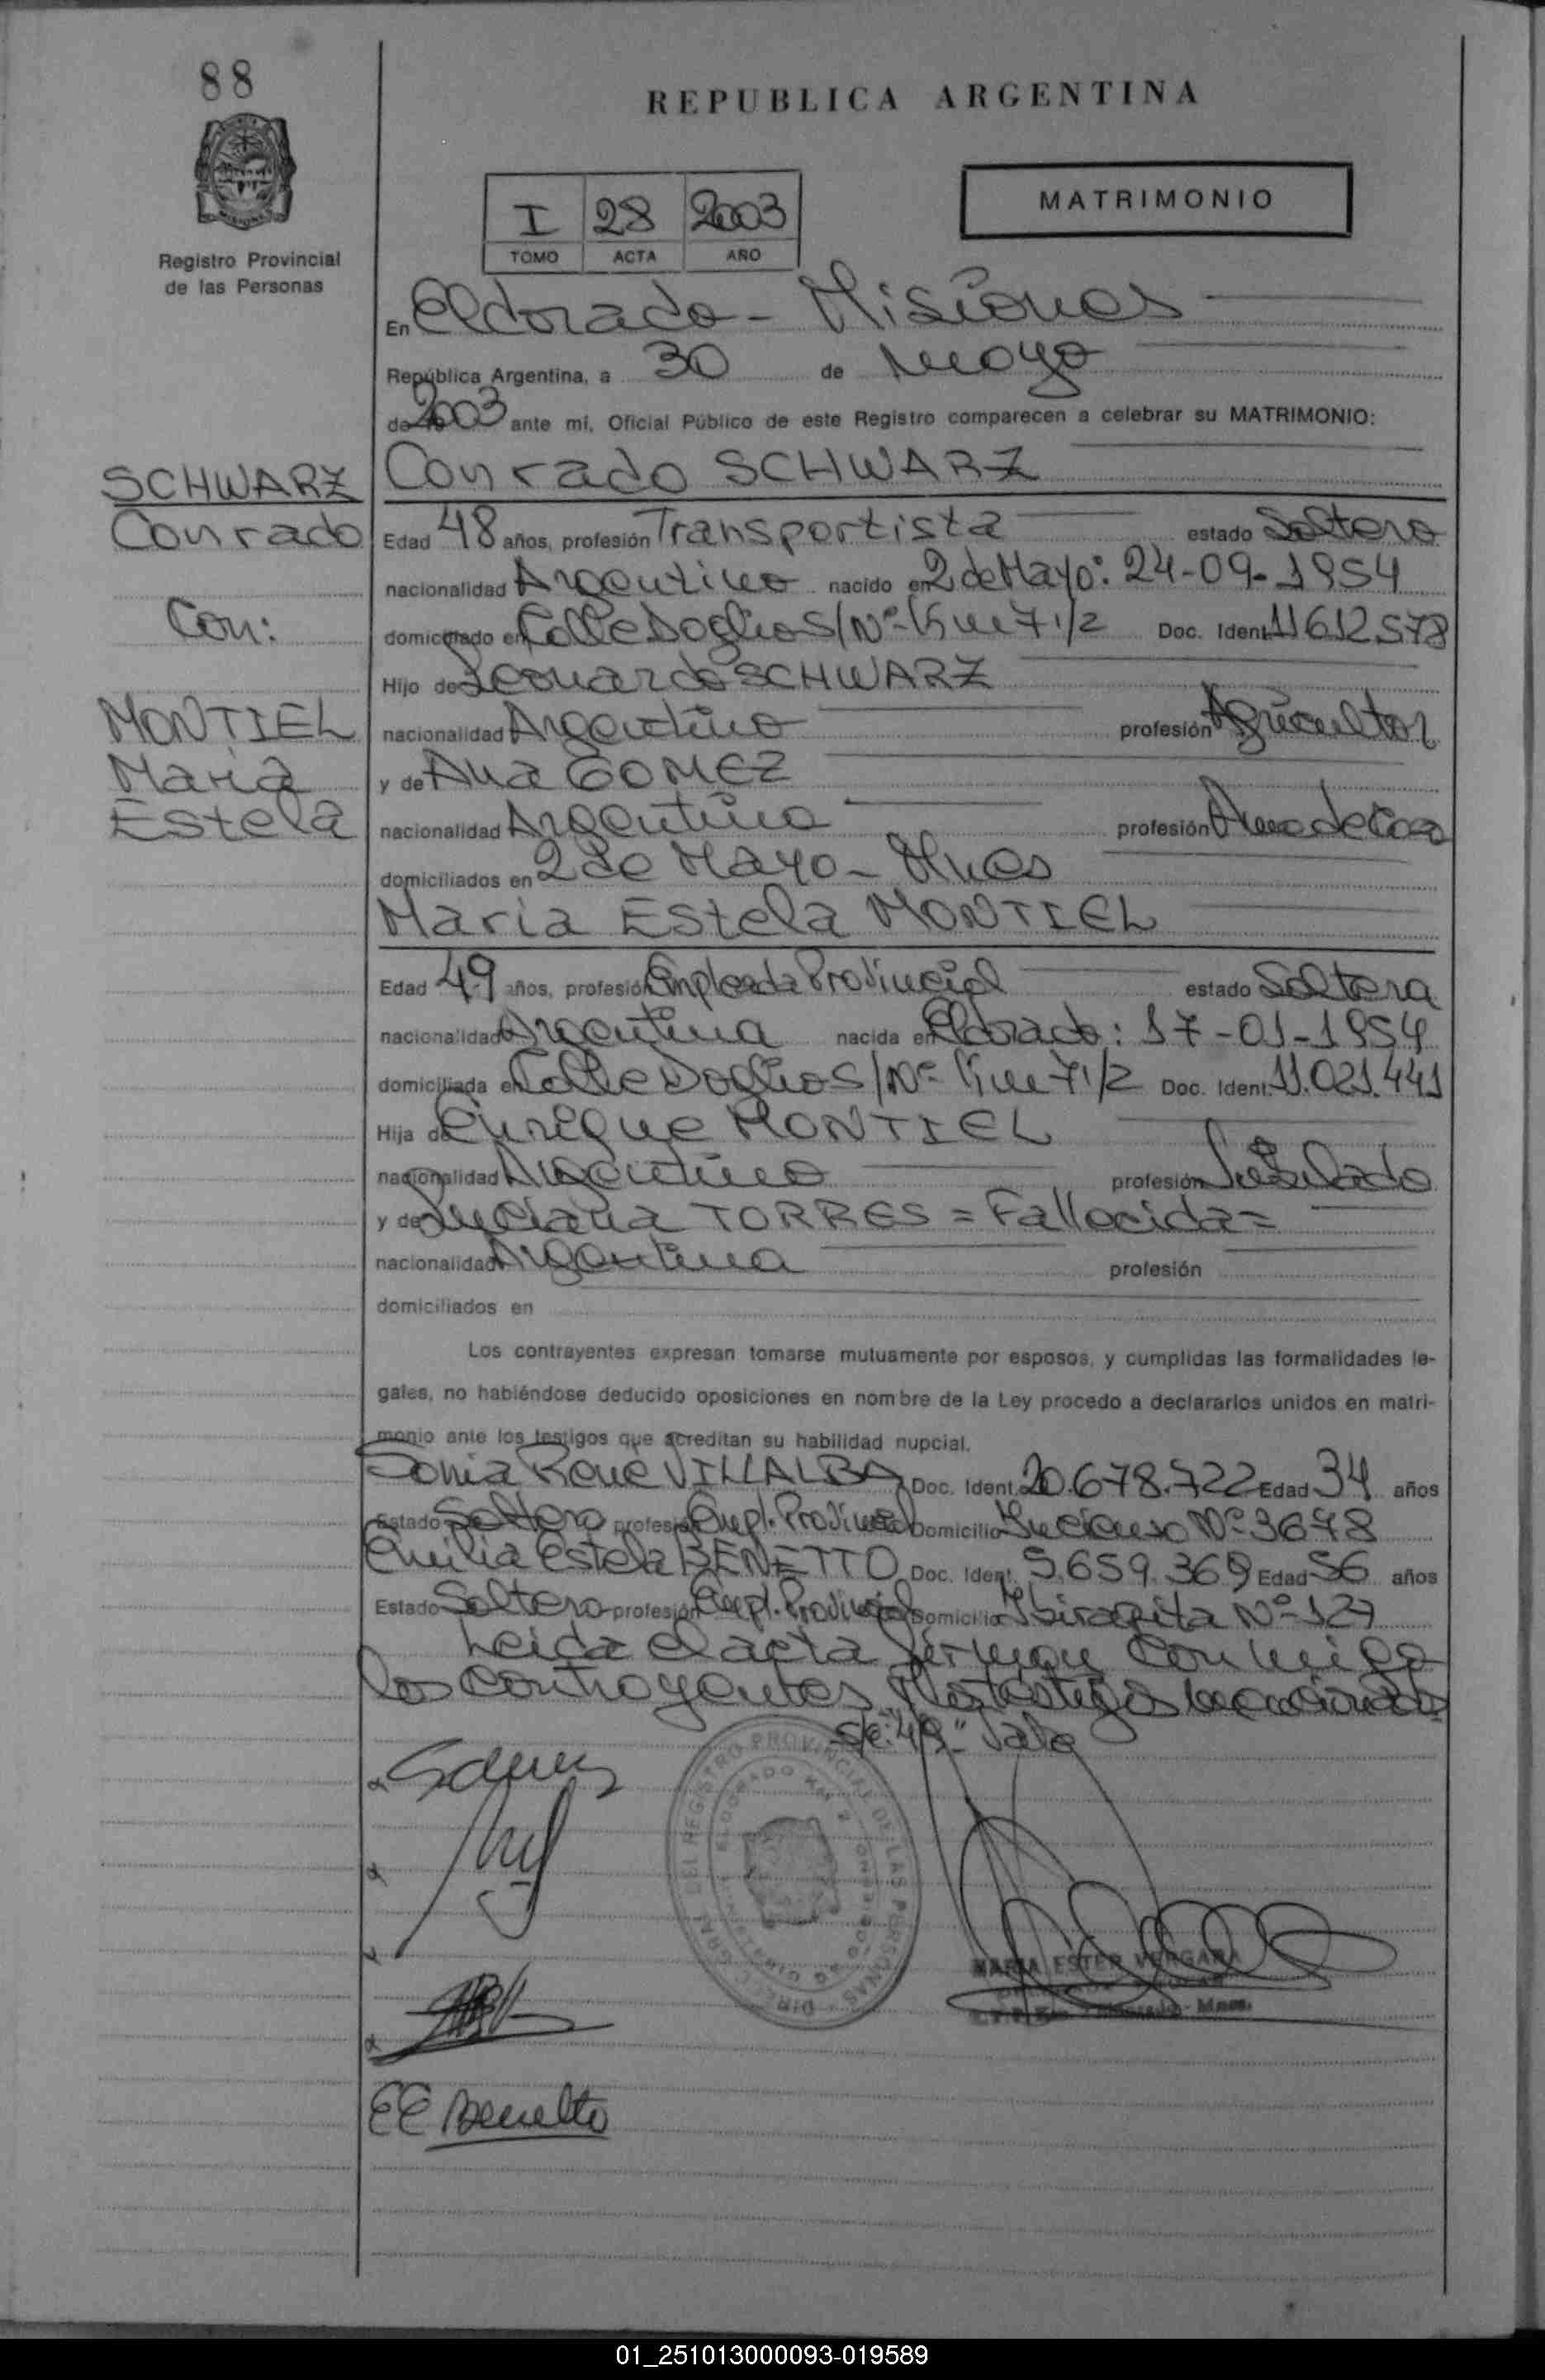 88
REPUBLICA ARGENTINA
MATRIMONIO
I 28 2003
TOMO ACTA AÑO
Registro Provincial
de las Personas
En Eldorado - Misiones
República Argentina, a 30 de Mayo
de 2003 ante mí, Oficial Público de este Registro comparecen a celebrar su MATRIMONIO:
SCHWARZ
Conrado
Con:
MONTIEL
Maria
Estela
Conrado SCHWARZ
Edad 48 años, profesión Transportista estado Soltero
nacionalidad Argentino nacido en 2 de Mayo: 24-09-1954
domiciliado en Calle Doglio S/Nº Km 7 1/2 Doc. Ident. 11612578
Hijo de Leonardo SCHWARZ
nacionalidad Argentino profesión Agricultor
y de Ana GOMEZ
nacionalidad Argentina profesión Ama de Casa
domiciliados en 2 de Mayo - Mnes
Maria Estela MONTIEL
Edad 49 años, profesión Empleada Provincial estado Soltera
nacionalidad Argentina nacida en Eldorado: 17-01-1954
domiciliada en Calle Doglio S/Nº Km 7 1/2 Doc. Ident. 11.021.441
Hija de Enrique MONTIEL
nacionalidad Argentino profesión Jubilado
y de Luciana TORRES = Fallecida =
nacionalidad Argentina profesión
domiciliados en
Los contrayentes expresan tomarse mutuamente por esposos, y cumplidas las formalidades le-
gales, no habiéndose deducido oposiciones en nombre de la Ley procedo a declararlos unidos en matri-
monio ante los testigos que acreditan su habilidad nupcial.
Sonia Rene VILLALBA Doc. Ident. 20.678.722 Edad 34 años
Estado Soltera profesión Empl. Provincial Domicilio Incienso Nº 3678
Emilia Estela BENETTO Doc. Ident. 5.659.369 Edad 56 años
Estado Soltera profesión Empl. Provincial Domicilio Ibirapita Nº 127
Leida el acta firman conmigo
los contrayentes y los testigos mencionados
s/e: "49" Vale
DIREC. GRAL DEL REGISTRO PROVINCIAL DE LAS PERSONAS
ELDORADO
MARIA ESTER VERGARA
EE Benetto
01_251013000093-019589